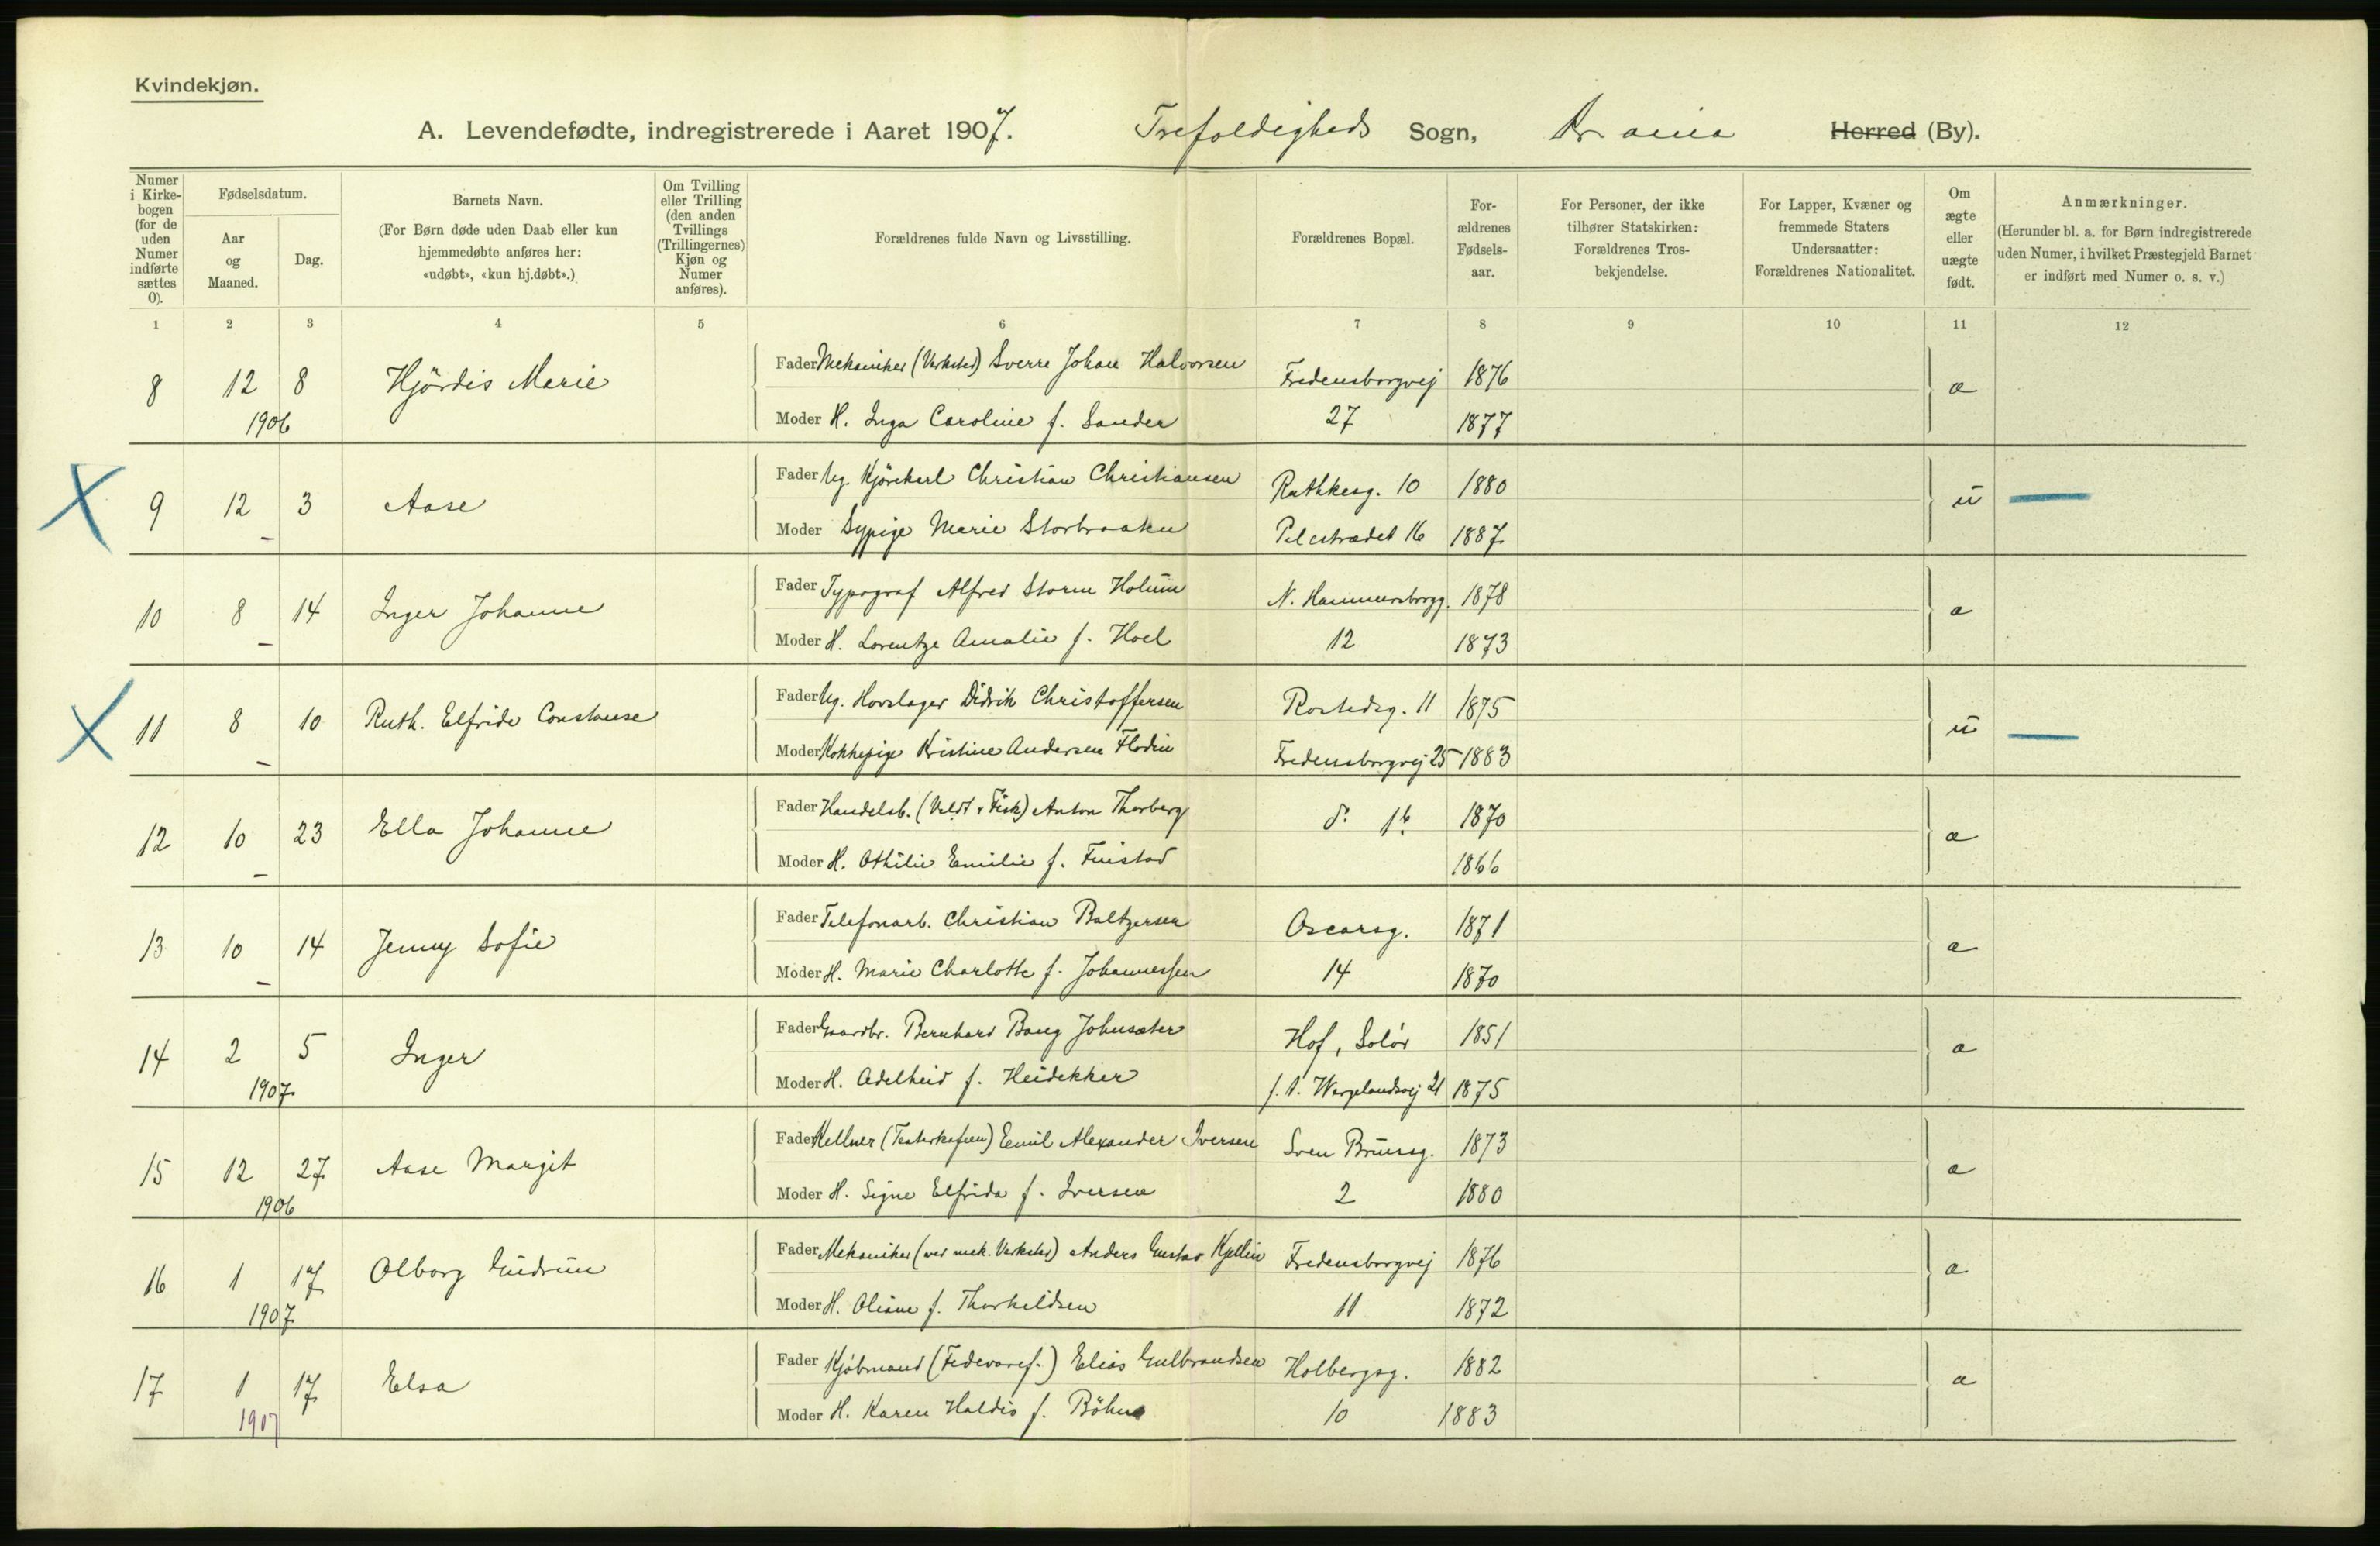 Kvindekjøn.
A. Levendefødte, indregistrerede i Aaret 1907. Trefoldigheds Sogn, Kr.ania Herred (By).
Numer i Kirkebogen (for de uden Numer indførte sættes 0).
Fødselsdatum.
Aar og Maaned.
Dag.
Barnets Navn.
(For Børn døde uden Daab eller kun hjemmedøbte anføres her: «udøbt», «kun hj.døbt».)
Om Tvilling eller Trilling (den anden Tvillings (Trillingernes) Kjøn og Numer anføres).
Forældrenes fulde Navn og Livsstilling.
Forældrenes Bopæl.
Forældrenes Fødselsaar.
For Personer, der ikke tilhører Statskirken: Forældrenes Trosbekjendelse.
For Lapper, Kvæner og fremmede Staters Undersaatter: Forældrenes Nationalitet.
Om ægte eller uægte født.
Anmærkninger.
(Herunder bl. a. for Børn indregistrerede uden Numer, i hvilket Præstegjeld Barnet er indført med Numer o. s. v.)
1 2 3 4 5 6 7 8 9 10 11 12
8 12 8 Hjördis Marie Fader Mekaniker (Verksted) Sverre Johan Halvorsen Fredensborgvej 1876 æ
1906 Moder H. Inga Caroline f. Sander 27 1877
X 9 12 3 Aase Fader Ug. Kjörekarl Christian Christiansen Rathkesg. 10 1880 u —
– Moder Sypige Marie Storbraaten Pilestrædet 16 1887
10 8 14 Inger Johanne Fader Typograf Alfred Storm Holum N. Hammersborgg. 1878 æ
– Moder H. Lorentze Amalie f. Hoel 12 1873
X 11 8 10 Ruth. Elfride Constanse Fader Ug. Hovslager Didrik Christoffersen Rostedsg. 11 1875 u —
– Moder Kokkepige Kristine Andersen Flodin Fredensborgvej 25 1883
12 10 23 Ella Johanne Fader Handelsb. (Vildt & Fisk) Anton Thorberg d. 1b. 1870 æ
– Moder H. Othilie Emilie f. Finstad 1866
13 10 14 Jenny Sofie Fader Telefonarb. Christian Baltzersen Oscarsg. 1871 æ
– Moder H. Marie Charlotte f. Johannessen 14 1870
14 2 5 Inger Fader Gaardbr. Bernhard Bang Johnsæter Hof, Solör 1851 æ
1907 Moder H. Adelheid f. Heidekker f. t. Wergelandsvej 21 1875
15 12 27 Aase Margit Fader Kellner (Teaterkafeen) Emil Alexander Iversen Sven Brunsg. 1873 æ
1906 Moder H. Signe Elfrida f. Iversen 2 1880
16 1 17 Olborg Gudrun Fader Mekaniker (ved mek. Verksted) Anders Gustav Kjellin Fredensborgvej 1876 æ
1907 Moder H. Oliane f. Thorkildsen 11 1872
17 1 17 Elsa Fader Kjöbmand (Fedevaref.) Elias Gulbrandsen Holbergsg. 1882 æ
1907 Moder H. Karen Haldis f. Böhn 10 1883